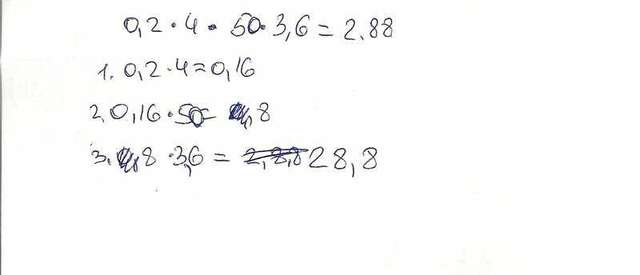 0,2 · 4 · 50 · 3,6 = 2.88
1. 0,2 · 4 = 0,16
2. 0,16 · 50 = 8
3. 8 · 3,6 = 2,8,8 28,8